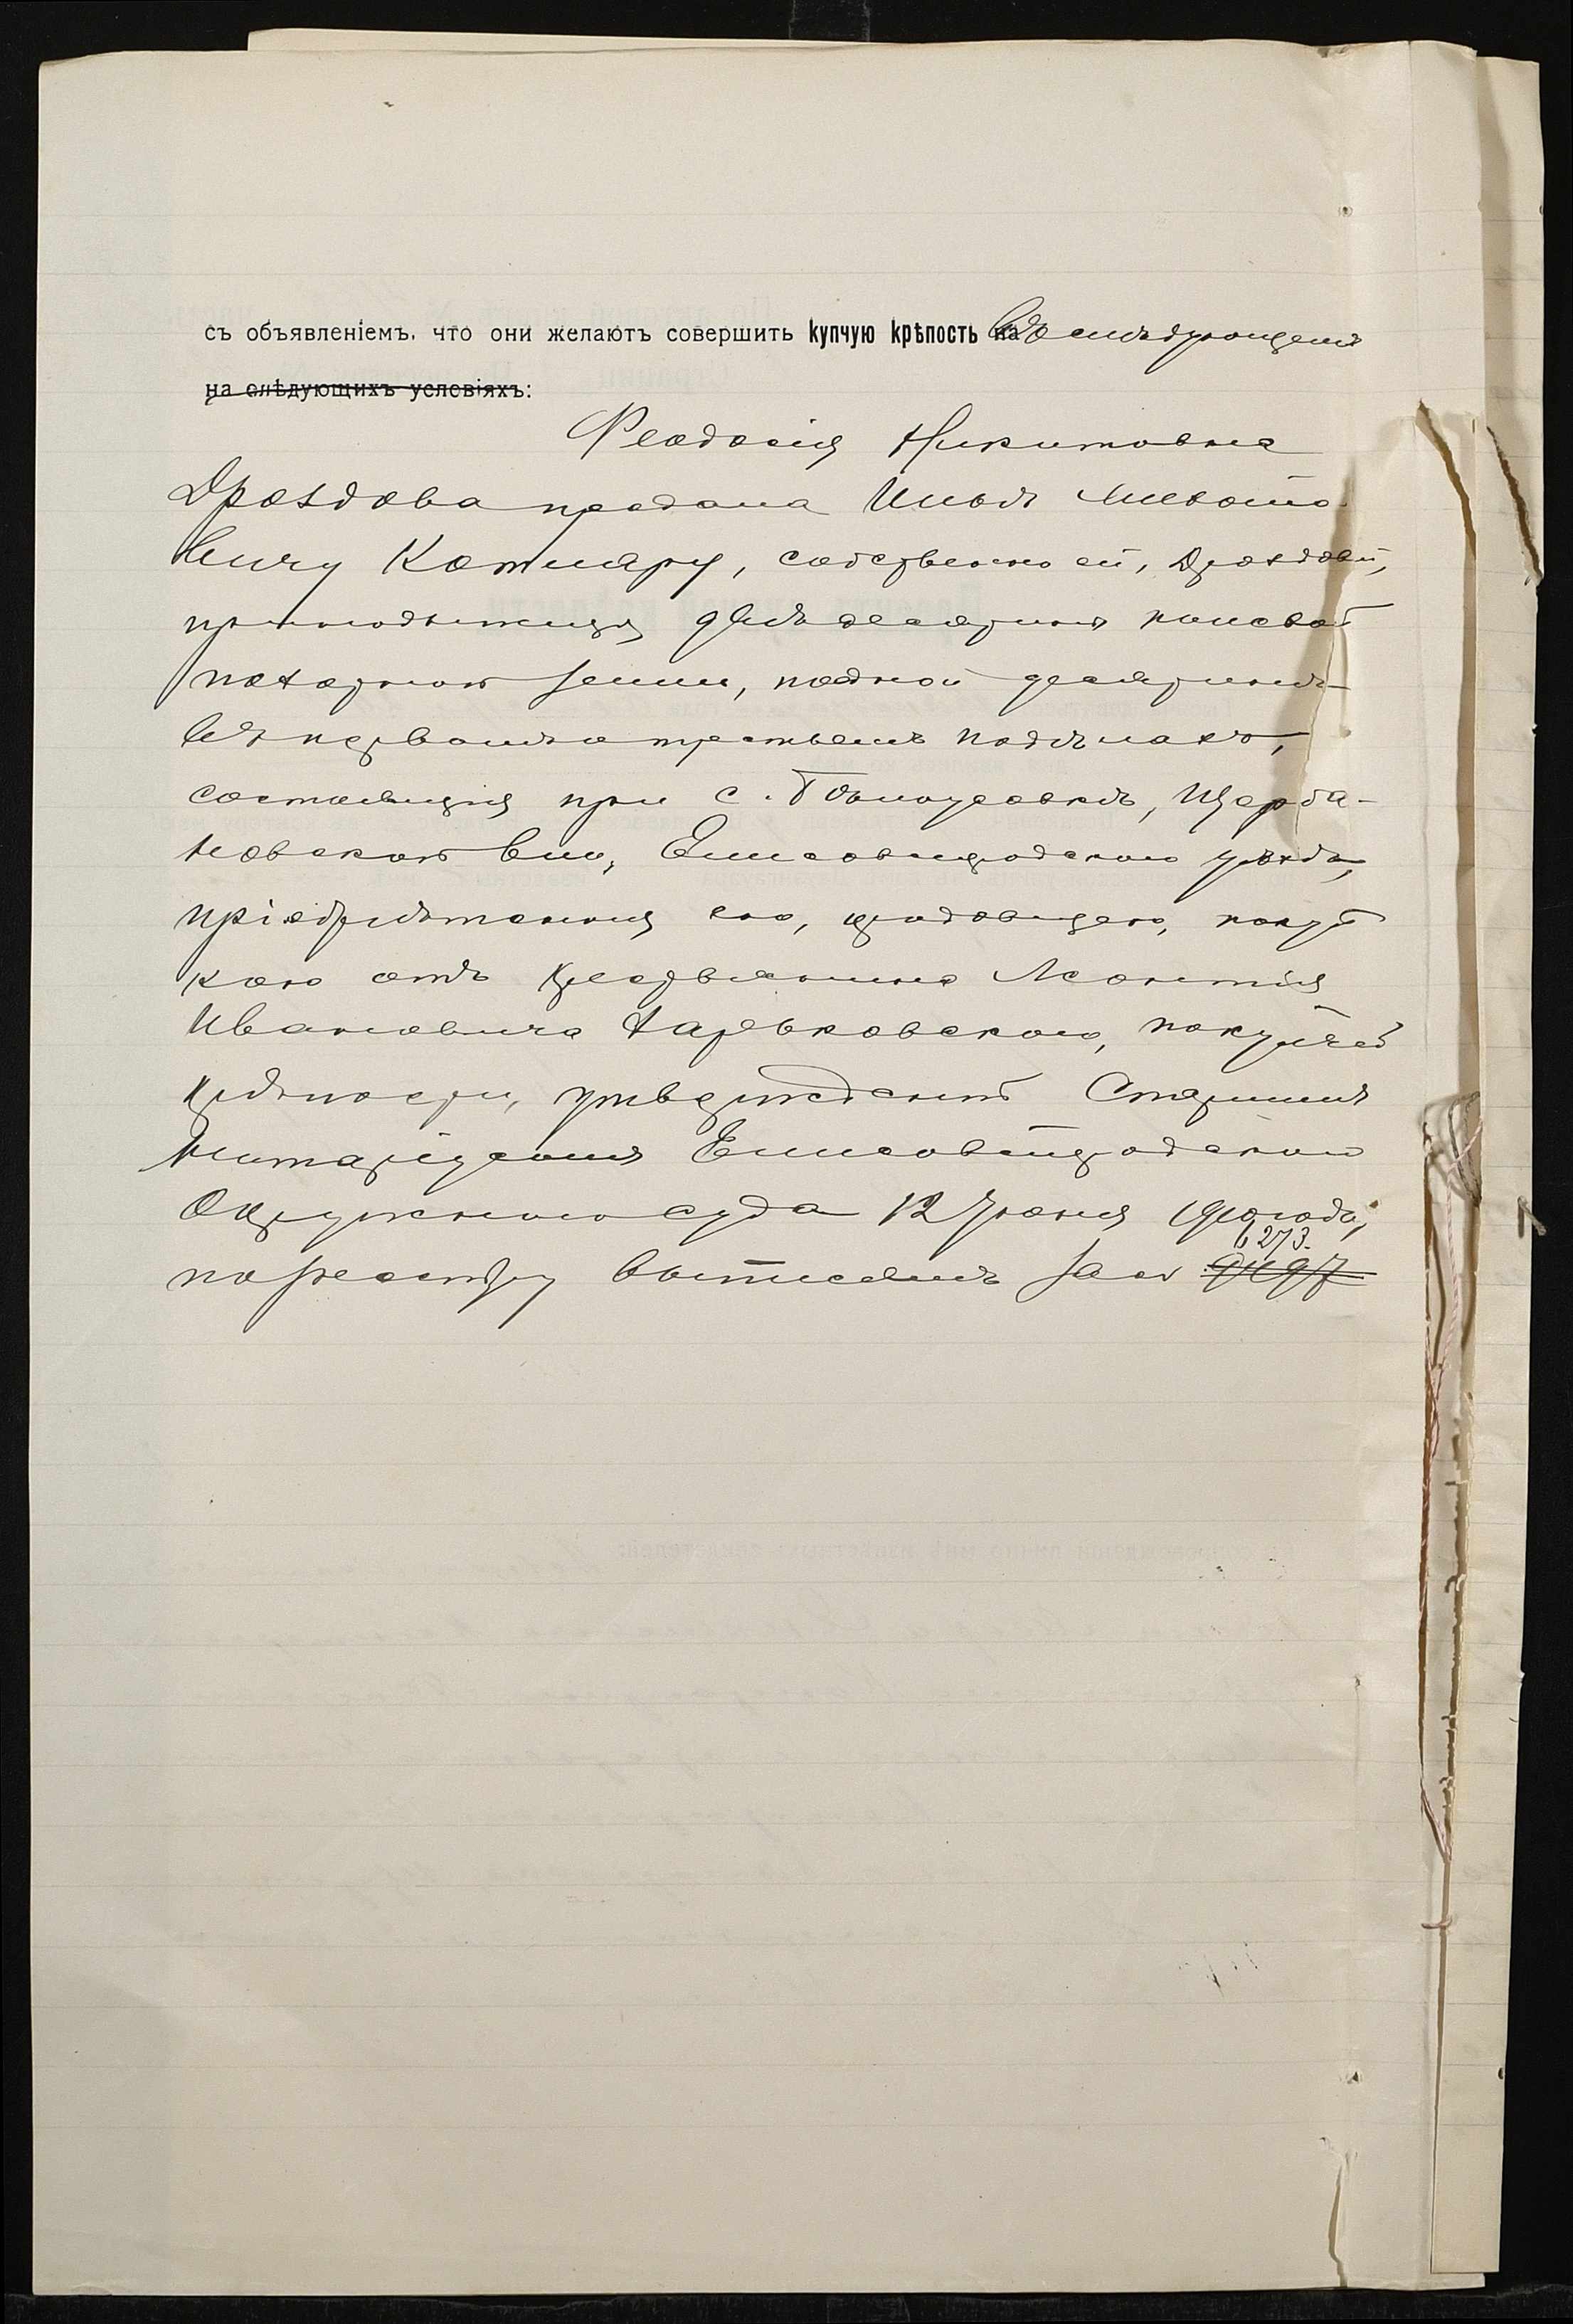 съ объявленіемъ, что они желаютъ совершить купчую крѣпость на въ слѣдующемъ
на слѣдующихъ условіяхъ:
Феодосія Никитовна
Дроздова продала Ильѣ
вичу Котляру, собственно ей, Дроздовой,
принадлежащія двѣ десятины полевой
пахатной земли, по одной десятинѣ
въ первомъ и третьемъ подѣлахъ,
состоящія при с. Щерба-
новской вол., Елисаветградскаго уѣзда,
пріобрѣтенныя ею, продавицею, покуп
кою отъ крестьянина Леонтія
Ивановича Харьковскаго, по купчей
крѣпости, утвержденной Старшимъ
Нотаріусомъ Елисаветградскаго
Окружнаго суда 12 Іюня 1910 года,
6273.
по реестру выписямъ за №